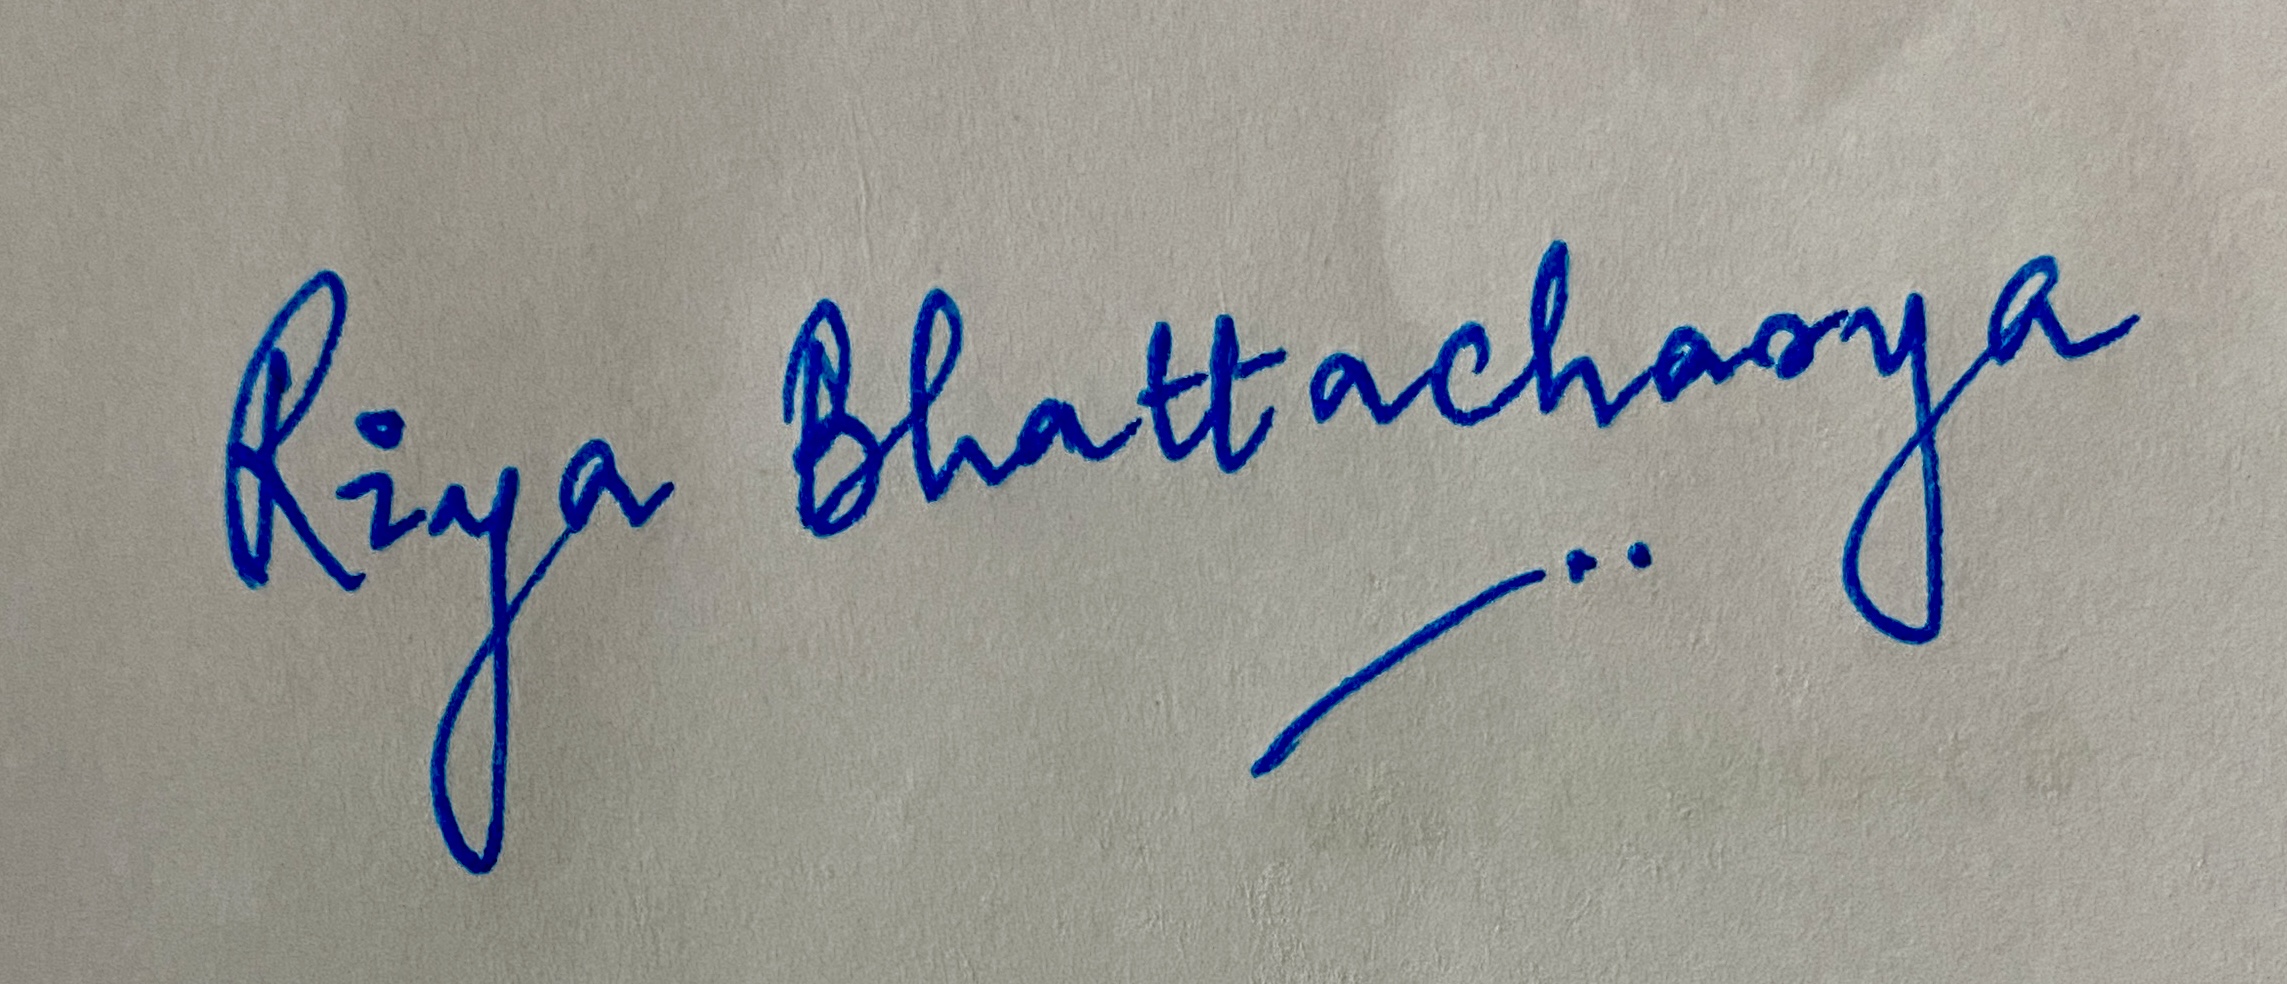 Riya Bhattacharya